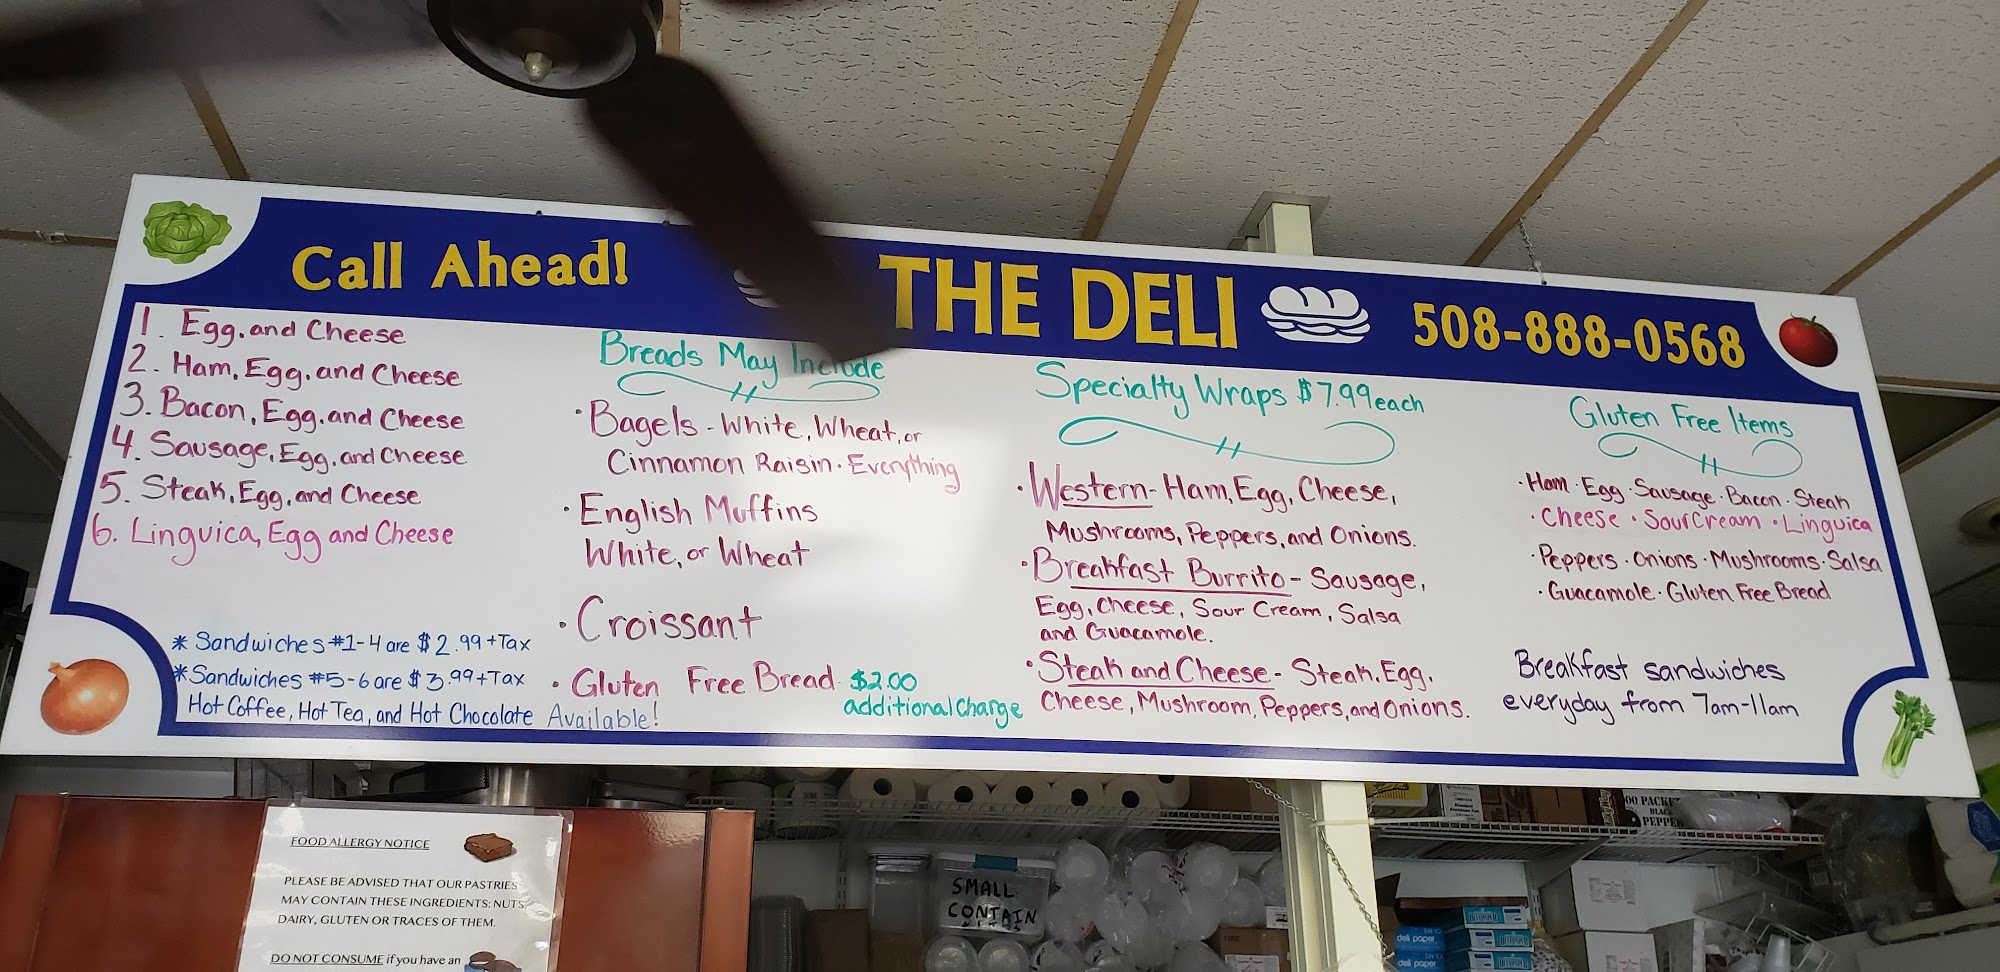 Call Ahead!
THE DELI
508-888-0568
1. Egg, and Cheese
2. Ham, Egg, and Cheese
3. Bacon, Egg, and Cheese
4. Sausage, Egg, and Cheese
5. Steak, Egg, and Cheese
6. Linguica, Egg and Cheese
* Sandwiches #1-4 are $2.99 + Tax
* Sandwiches #5-6 are $3.99 + Tax
Hot Coffee, Hot Tea, and Hot Chocolate Available!
Breads May Include
· Bagels - White, Wheat, or
Cinnamon Raisin · Everything
· English Muffins
White, or Wheat
· Croissant
· Gluten Free Bread $2.00
additional charge
Specialty Wraps $7.99 each
· Western - Ham, Egg, Cheese,
Mushrooms, Peppers, and Onions.
· Breakfast Burrito - Sausage,
Egg, Cheese, Sour Cream, Salsa
and Guacamole.
· Steak and Cheese - Steak, Egg,
Cheese, Mushroom, Peppers, and Onions.
Gluten Free Items
· Ham · Egg · Sausage · Bacon · Steak
· Cheese · Sour Cream · Linguica
· Peppers · Onions · Mushrooms · Salsa
· Guacamole · Gluten Free Bread
Breakfast sandwiches
everyday from 7am-11am
FOOD ALLERGY NOTICE
PLEASE BE ADVISED THAT OUR PASTRIES
MAY CONTAIN THESE INGREDIENTS: NUTS,
DAIRY, GLUTEN OR TRACES OF THEM.
DO NOT CONSUME if you have an
SMALL
CONTAIN
deli paper
deli paper
BLACK
PEPPER